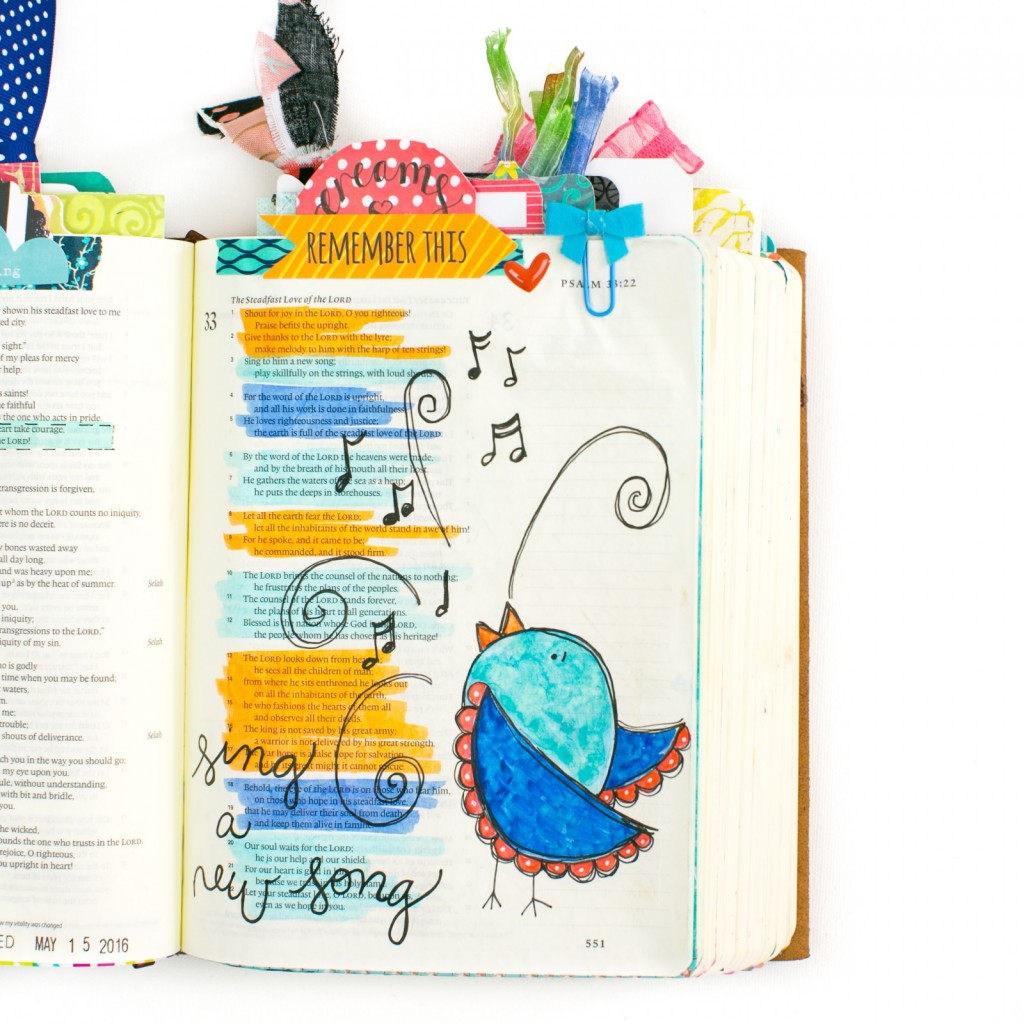 ing
shown his steadfast love to me
ed city.
sight."
of my pleas for mercy
help.
saints!
faithful
the one who acts in pride.
art take courage,
LORD!
transgression is forgiven,
whom the LORD counts no iniquity,
ere is no deceit.
bones wasted away
all day long.
and was heavy upon me;
up² as by the heat of summer. Selah
you,
iniquity;
transgressions to the LORD,"
iquity of my sin. Selah
is godly
time when you may be found;
waters,
me;
trouble;
shouts of deliverance. Selah
ch you in the way you should go;
my eye upon you.
without understanding,
with bit and bridle,
you.
he wicked,
ounds the one who trusts in the LORD.
rejoice, O righteous,
you upright in heart!
my vitality was changed
ED MAY 15 2016
dreams
REMEMBER THIS
PSALM 33:22
The Steadfast Love of the LORD
33
1 Shout for joy in the LORD, O you righteous!
Praise befits the upright.
2 Give thanks to the LORD with the lyre;
make melody to him with the harp of ten strings!
3 Sing to him a new song;
play skillfully on the strings, with loud shouts.
4 For the word of the LORD is upright,
and all his work is done in faithfulness.
5 He loves righteousness and justice;
the earth is full of the steadfast love of the LORD.
6 By the word of the LORD the heavens were made,
and by the breath of his mouth all their host.
7 He gathers the waters of the sea as a heap;
he puts the deeps in storehouses.
8 Let all the earth fear the LORD;
let all the inhabitants of the world stand in awe of him!
9 For he spoke, and it came to be;
he commanded, and it stood firm.
10 The LORD brings the counsel of the nations to nothing;
he frustrates the plans of the peoples.
11 The counsel of the LORD stands forever,
the plans of his heart to all generations.
12 Blessed is the nation whose God is the LORD,
the people whom he has chosen as his heritage!
13 The LORD looks down from heaven;
he sees all the children of man;
14 from where he sits enthroned he looks out
on all the inhabitants of the earth,
15 he who fashions the hearts of them all
and observes all their deeds.
16 The king is not saved by his great army;
a warrior is not delivered by his great strength.
17 The war horse is a false hope for salvation,
and by its great might it cannot rescue.
18 Behold, the eye of the LORD is on those who fear him,
on those who hope in his steadfast love,
19 that he may deliver their soul from death
and keep them alive in famine.
20 Our soul waits for the LORD;
he is our help and our shield.
21 For our heart is glad in him,
because we trust in his holy name.
22 Let your steadfast love, O LORD, be upon us,
even as we hope in you.
sing
a
new song
551